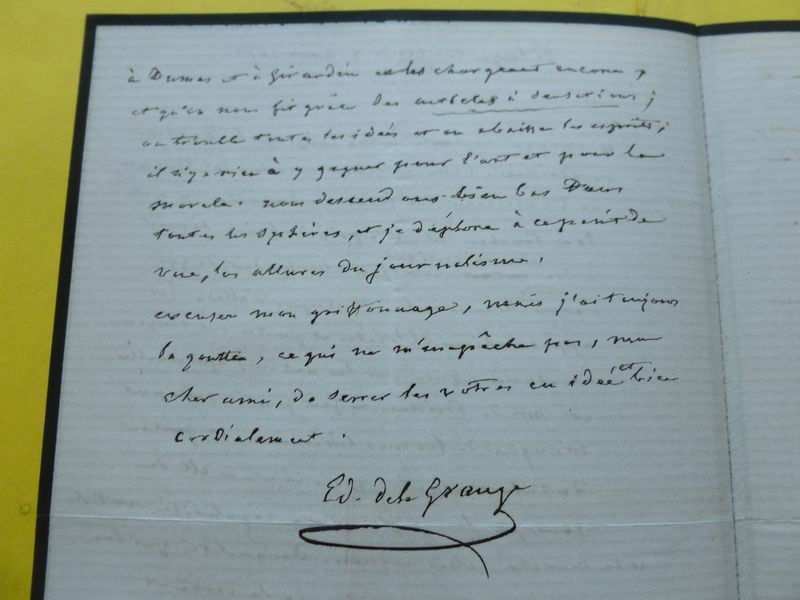 à Dumas et à Girardin et les chargeant encore,
et qu'on nous fit grâce des articles à sensations ;
on trouble toutes les idées et on abaisse les esprits ;
il n'y a rien à y gagner pour l'art et pour la
morale. nous descendons bien bas Dans
toutes les sphères, et je déplore à ce point de
vue, les allures du journalisme.
excusez mon griffonnage, mais j'ai toujours
la goutte, ce qui ne m'empêche pas, mon
cher ami, de serrer les votres en idée et bien
cordialement.
Ed. de la Grange